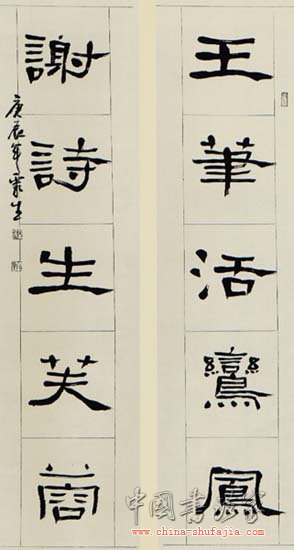 王筆活鸞鳳
謝詩生芙蓉
庚辰年
中國书法家
www.china-shufajia.com